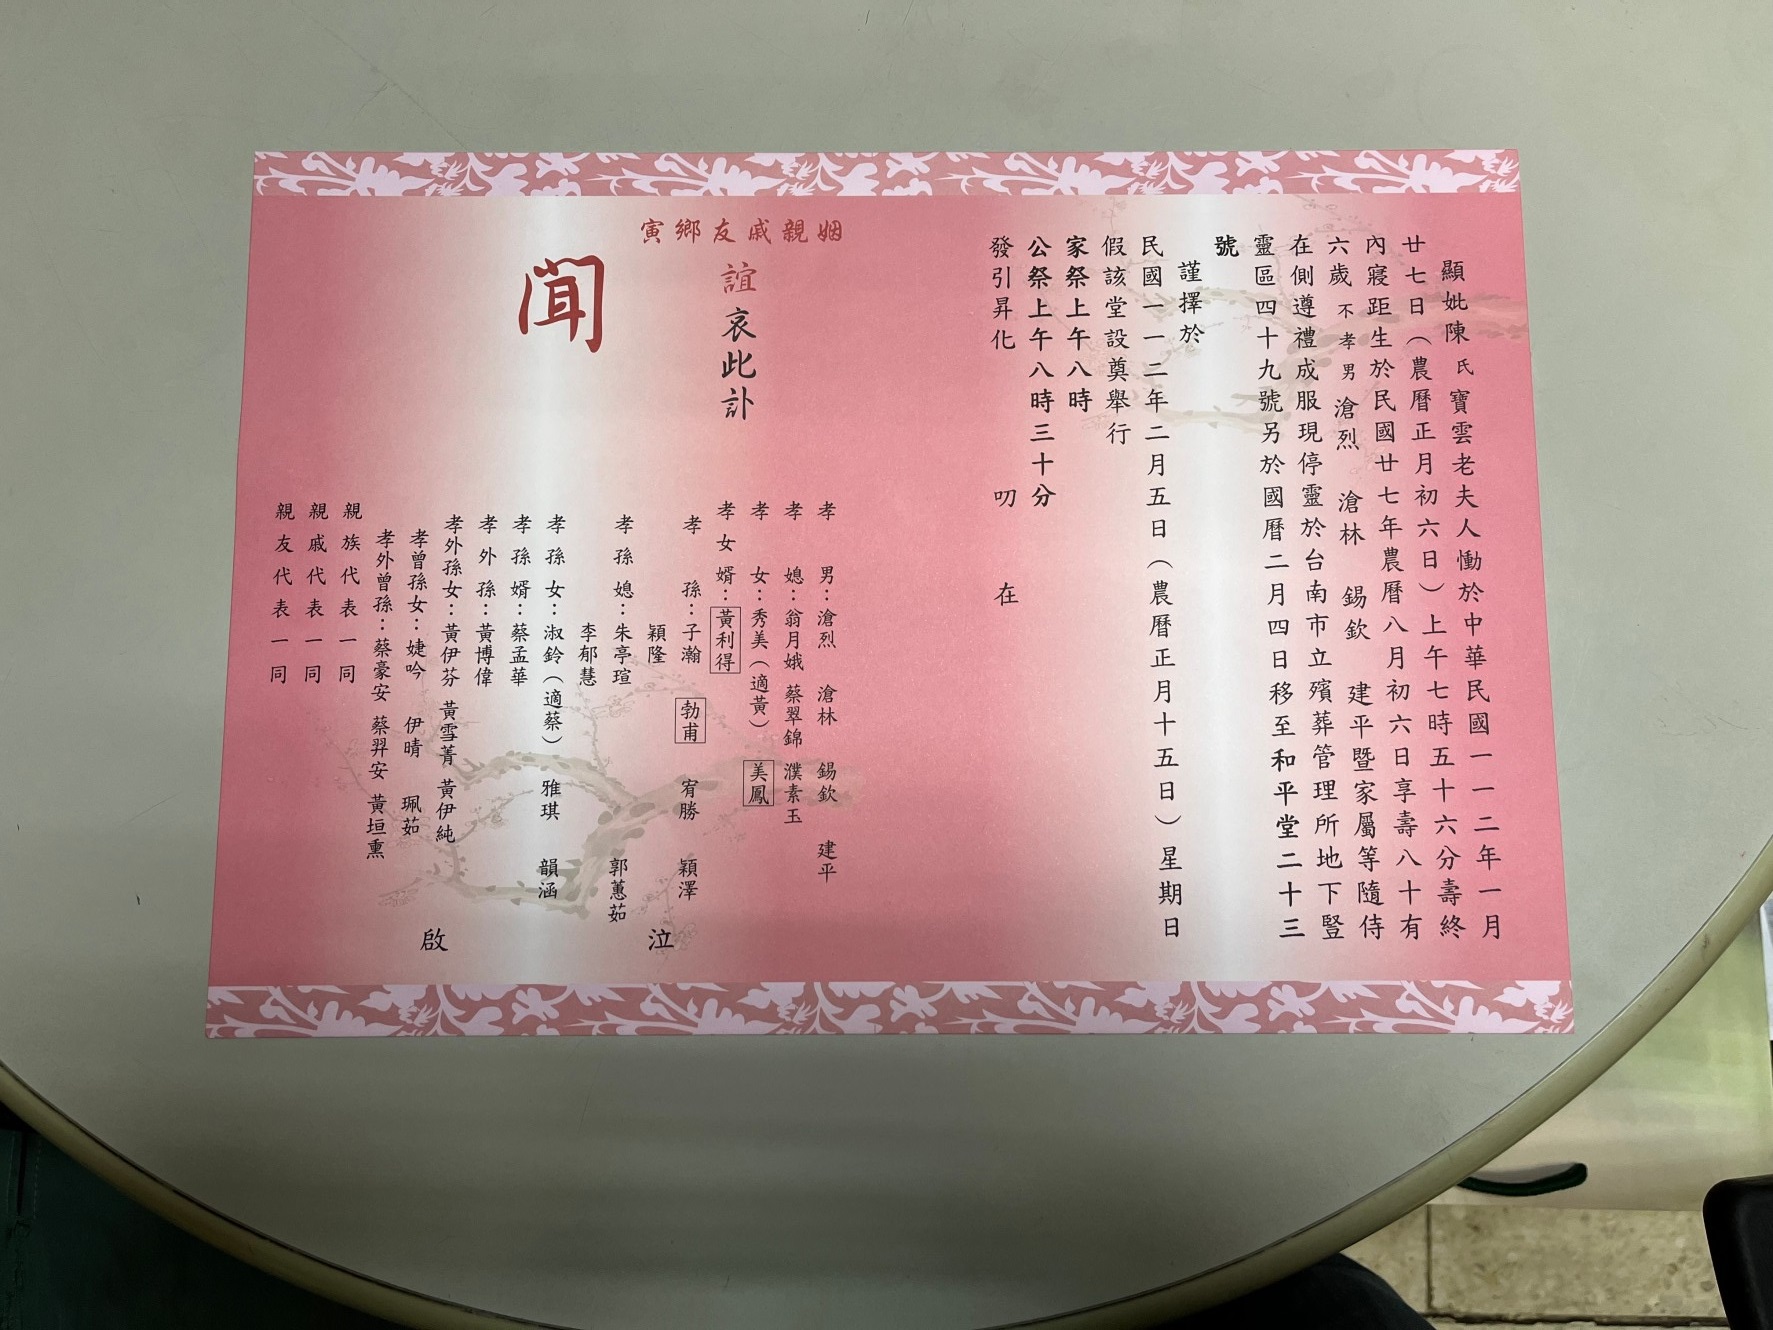 顯妣陳氏寶雲老夫人慟於中華民國一一二年一月
廿七日（農曆正月初六日）上午七時五十六分壽終
內寢距生於民國廿七年農曆八月初六日享壽八十有
六歲不孝男滄烈 滄林 錫欽 建平暨家屬等隨侍
在側遵禮成服現停靈於台南市立殯葬管理所地下豎
靈區四十九號另於國曆二月四日移至和平堂二十三
號
謹擇於
民國一一二年二月五日（農曆正月十五日）星期日
假該堂設奠舉行
家祭上午八時
公祭上午八時三十分
發引昇化 叨 在
姻親戚友鄉寅
誼哀此訃
聞
孝男：滄烈 滄林 錫欽 建平
孝媳：翁月娥 蔡翠錦 濮素玉
孝女：秀美（適黃） 美鳳
孝女婿：黃利得
孝孫：子瀚 勃甫 宥勝 穎澤
穎隆
孝孫媳：朱亭瑄 郭蕙茹
李郁慧
孝孫女：淑鈴（適蔡） 雅琪 韻涵
孝孫婿：蔡孟華
孝外孫：黃博偉
孝外孫女：黃伊芬 黃雪菁 黃伊純
孝曾孫女：婕吟 伊晴 珮茹
孝外曾孫：蔡豪安 蔡羿安 黃垣熏
親族代表一同
親戚代表一同
親友代表一同
泣
啟